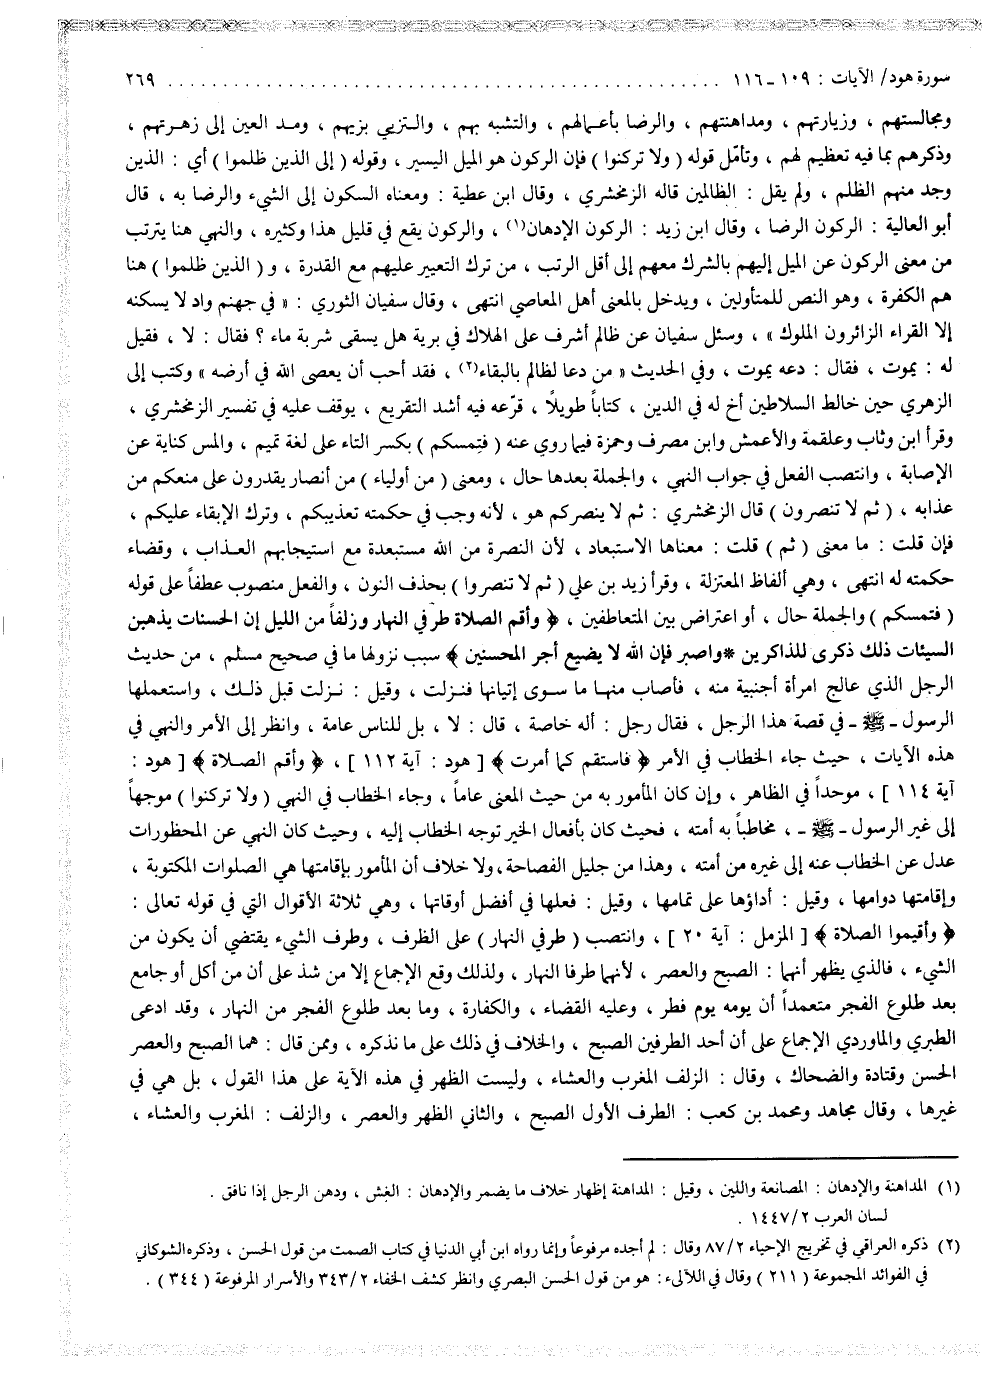 سورة هود/ الآيات : ١٠٩ - ١١٦ . . . . . . . . . . . . . . . . . . . . . . . . . . . . . . . . . . . . . . . . ٢٦٩
ومجالستهم ، وزيارتهم ، ومداهنتهم ، والرضا بأعمالهم ، والتشبه بهم ، والتزيي بزيهم ، ومد العين إلى زهرتهم ،
وذكرهم بما فيه تعظيم لهم ، وتأمّل قوله ( ولا تركنوا ) فإن الركون هو الميل اليسير ، وقوله ( إلى الذين ظلموا ) أي : الذين
وجد منهم الظلم ، ولم يقل : الظالمين قاله الزمخشري ، وقال ابن عطية : ومعناه السكون إلى الشيء والرضا به ، قال
أبو العالية : الركون الرضا ، وقال ابن زيد : الركون الإدهان(١) ، والركون يقع في قليل هذا وكثيره ، والنهي هنا يترتب
من معنى الركون عن الميل إليهم بالشرك معهم إلى أقل الرتب ، من ترك التعيير عليهم مع القدرة ، و ( الذين ظلموا ) هنا
هم الكفرة ، وهو النص للمتأولين ، ويدخل بالمعنى أهل المعاصي انتهى ، وقال سفيان الثوري : « في جهنم واد لا يسكنه
إلا القراء الزائرون الملوك » ، وسئل سفيان عن ظالم أشرف على الهلاك في برية هل يسقى شربة ماء ؟ فقال : لا ، فقيل
له : يموت ، فقال : دعه يموت ، وفي الحديث « من دعا لظالم بالبقاء(٢) ، فقد أحب أن يعصى الله في أرضه » وكتب إلى
الزهري حين خالط السلاطين أخ له في الدين ، كتاباً طويلاً ، قرّعه فيه أشد التقريع ، يوقف عليه في تفسير الزمخشري ،
وقرأ ابن وثاب وعلقمة والأعمش وابن مصرف وحمزة فيما روي عنه ( فتِمسكم ) بكسر التاء على لغة تميم ، والمس كناية عن
الإصابة ، وانتصب الفعل في جواب النهي ، والجملة بعدها حال ، ومعنى ( من أولياء ) من أنصار يقدرون على منعكم من
عذابه ، ( ثم لا تنصرون ) قال الزمخشري : ثم لا ينصركم هو ، لأنه وجب في حكمته تعذيبكم ، وترك الإبقاء عليكم ،
فإن قلت : ما معنى ( ثم ) قلت : معناها الاستبعاد ، لأن النصرة من الله مستبعدة مع استيجابهم العذاب ، وقضاء
حكمته له انتهى ، وهي ألفاظ المعتزلة ، وقرأ زيد بن علي ( ثم لا تنصروا ) بحذف النون ، والفعل منصوب عطفاً على قوله
( فتمسكم ) والجملة حال ، أو اعتراض بين المتعاطفين ، ﴿ وأقم الصلاة طرفي النهار وزلفاً من الليل إن الحسنات يذهبن
السيئات ذلك ذكرى للذاكرين *واصبر فإن الله لا يضيع أجر المحسنين ﴾ سبب نزولها ما في صحيح مسلم ، من حديث
الرجل الذي عالج امرأة أجنبية منه ، فأصاب منها ما سوى إتيانها فنزلت ، وقيل : نزلت قبل ذلك ، واستعملها
الرسول - ﷺ - في قصة هذا الرجل ، فقال رجل : أله خاصة ، قال : لا ، بل للناس عامة ، وانظر إلى الأمر والنهي في
هذه الآيات ، حيث جاء الخطاب في الأمر ﴿ فاستقم كما أمرت ﴾ [ هود : آية ١١٢ ] ، ﴿ وأقم الصلاة ﴾ [ هود :
آية ١١٤ ] ، موحداً في الظاهر ، وإن كان المأمور به من حيث المعنى عاماً ، وجاء الخطاب في النهي ( ولا تركنوا ) موجهاً
إلى غير الرسول - ﷺ - ، مخاطباً به أمته ، فحيث كان بأفعال الخير توجه الخطاب إليه ، وحيث كان النهي عن المحظورات
عدل عن الخطاب عنه إلى غيره من أمته ، وهذا من جليل الفصاحة، ولا خلاف أن المأمور بإقامتها هي الصلوات المكتوبة ،
وإقامتها دوامها ، وقيل : أداؤها على تمامها ، وقيل : فعلها في أفضل أوقاتها ، وهي ثلاثة الأقوال التي في قوله تعالى :
﴿ وأقيموا الصلاة ﴾ [ المزمل : آية ٢٠ ] ، وانتصب ( طرفي النهار ) على الظرف ، وطرف الشيء يقتضي أن يكون من
الشيء ، فالذي يظهر أنهما : الصبح والعصر ، لأنهما طرفا النهار ، ولذلك وقع الإجماع إلا من شذ على أن من أكل أو جامع
بعد طلوع الفجر متعمداً أن يومه يوم فطر ، وعليه القضاء ، والكفارة ، وما بعد طلوع الفجر من النهار ، وقد ادعى
الطبري والماوردي الإجماع على أن أحد الطرفين الصبح ، والخلاف في ذلك على ما نذكره ، وممن قال : هما الصبح والعصر
الحسن وقتادة والضحاك ، وقال : الزلف المغرب والعشاء ، وليست الظهر في هذه الآية على هذا القول ، بل هي في
غيرها ، وقال مجاهد ومحمد بن كعب : الطرف الأول الصبح ، والثاني الظهر والعصر ، والزلف : المغرب والعشاء ،
(١) المداهنة والإدهان : المصانعة واللين ، وقيل : المداهنة إظهار خلاف ما يضمر والإدهان : الغش ، ودهن الرجل إذا نافق .
لسان العرب ١٤٤٧/٢ .
(٢) ذكره العراقي في تخريج الإحياء ٨٧/٢ وقال : لم أجده مرفوعاً وإنما رواه ابن أبي الدنيا في كتاب الصمت من قول الحسن ، وذكره الشوكاني
في الفوائد المجموعة ( ٢١١ ) وقال في اللآلىء : هو من قول الحسن البصري وانظر كشف الخفاء ٣٤٣/٢ والأسرار المرفوعة ( ٣٤٤ ) .